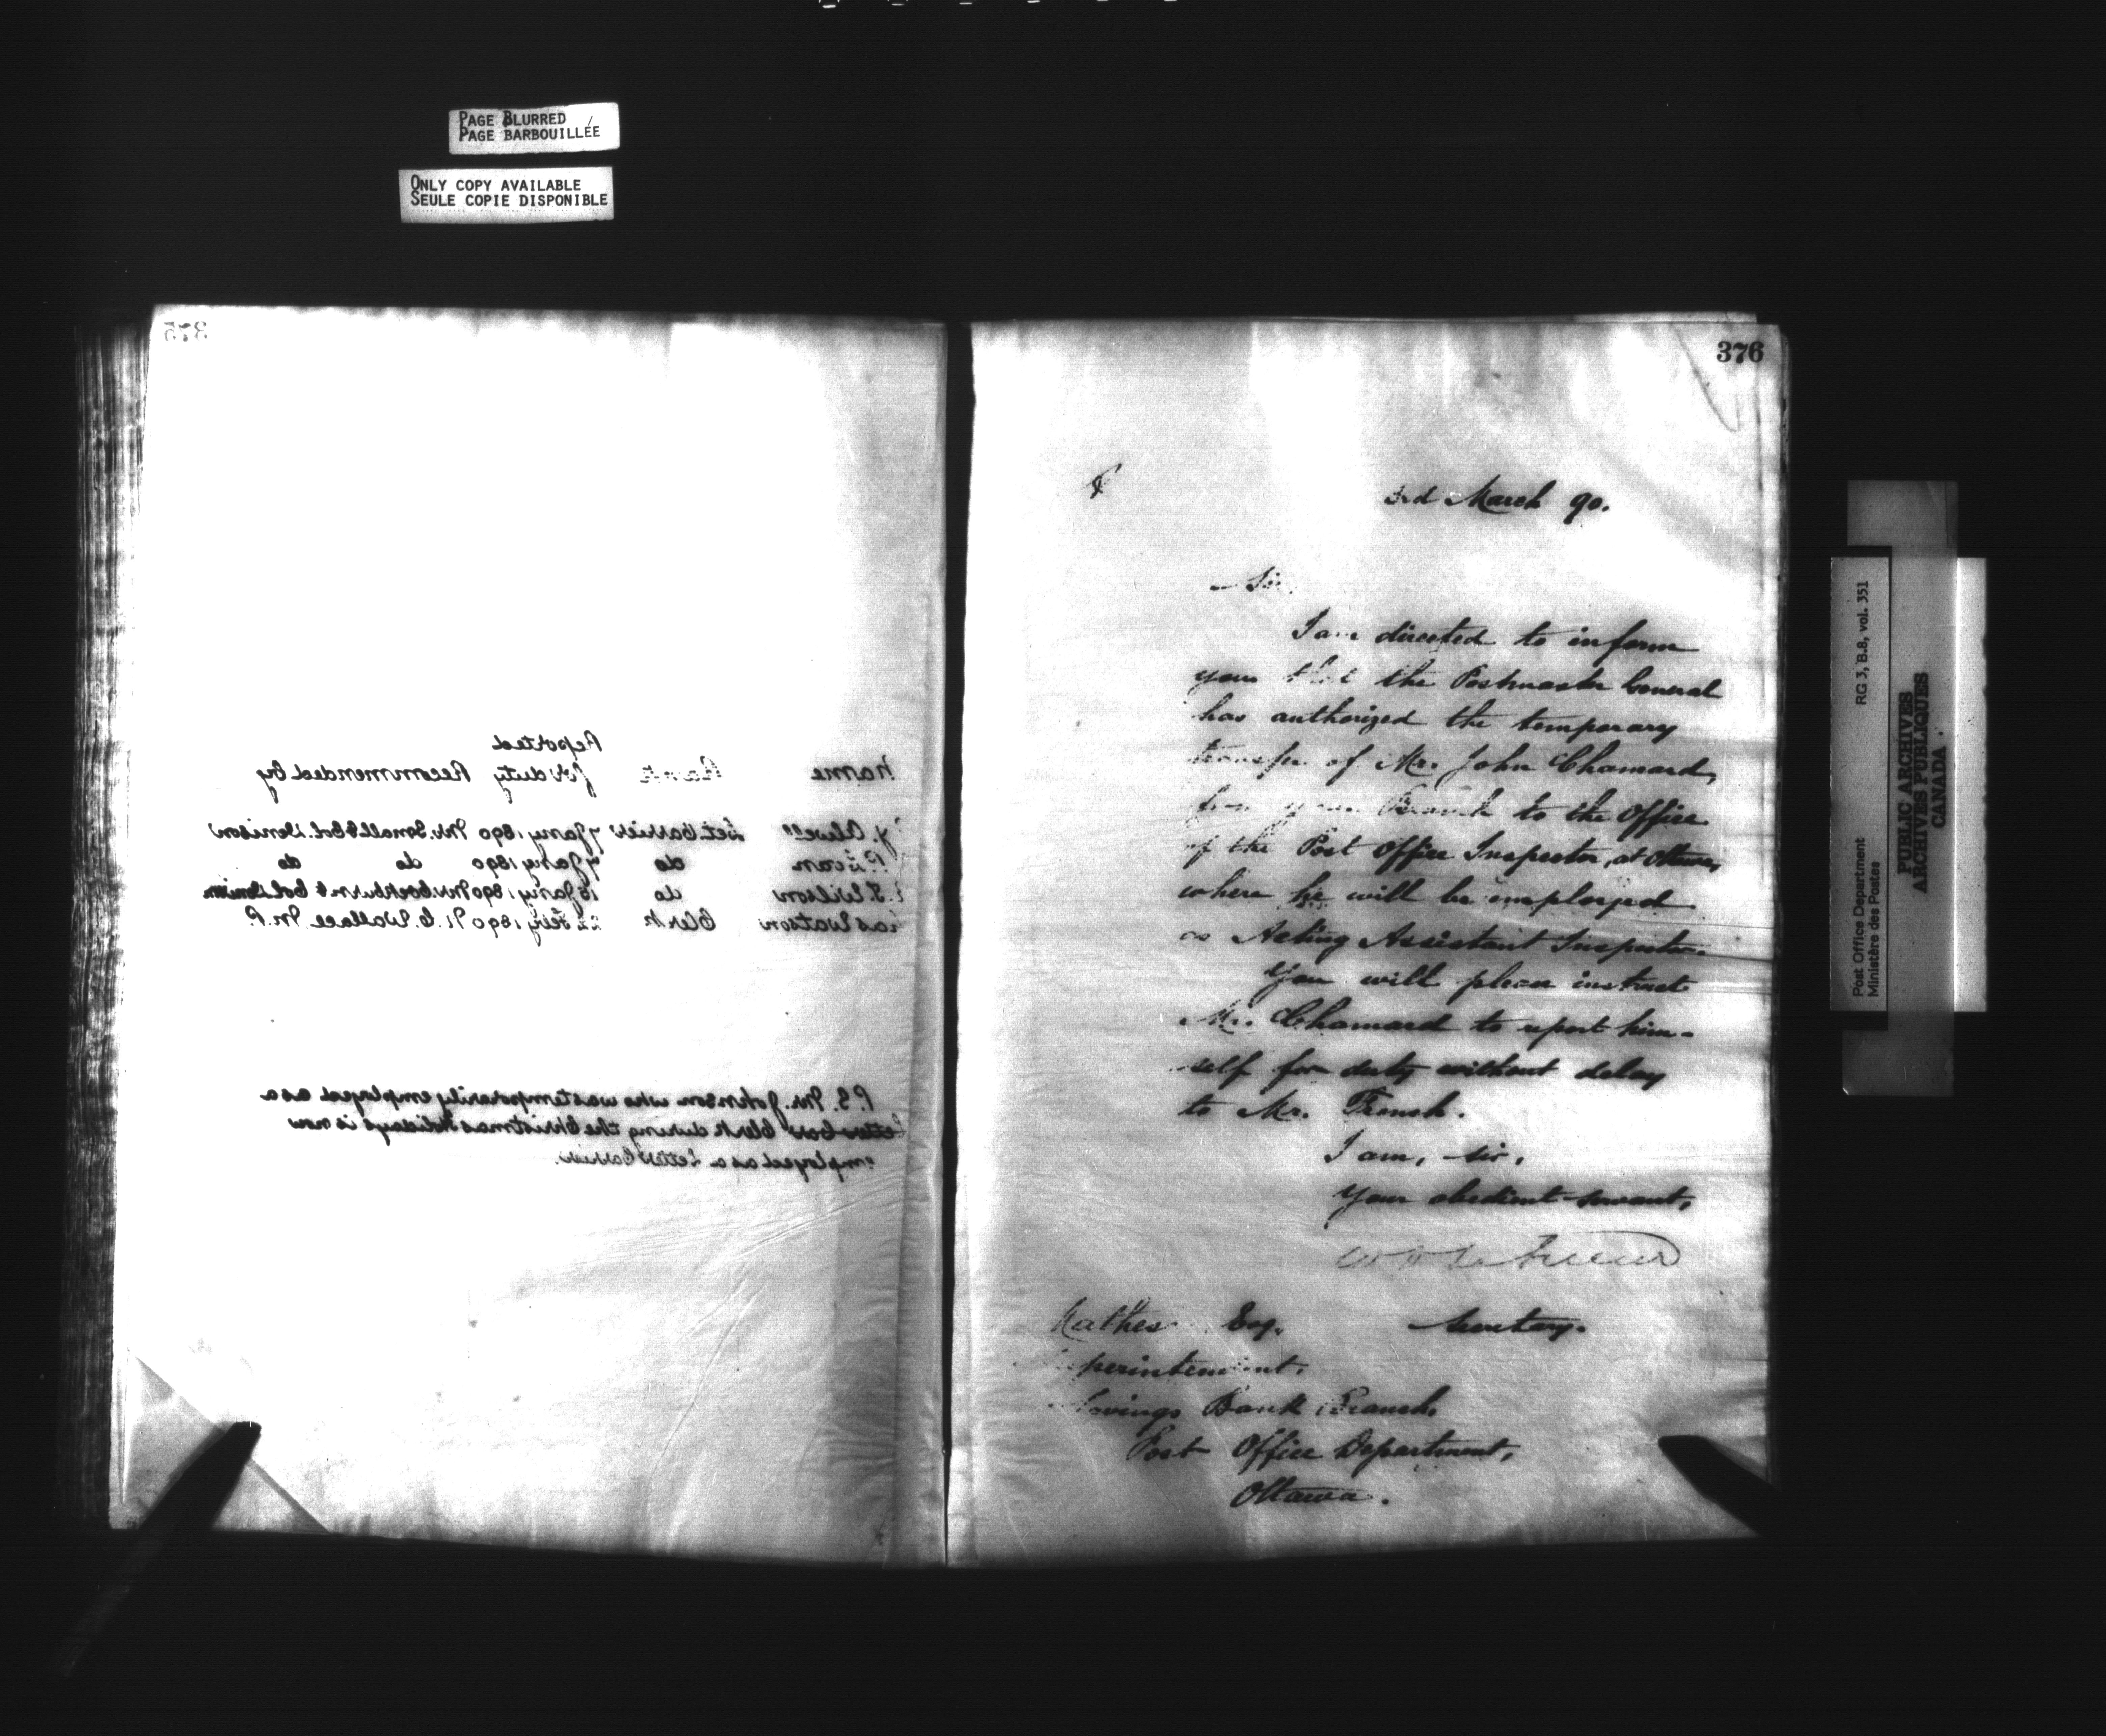 PAGE BLURRED
PAGE BARBOUILLÉE
ONLY COPY AVAILABLE
SEULE COPIE DISPONIBLE
375
Reported
Name Rank for duty Recommended by
J. Atwell Let. Carrier 7 Jany 1890 Mr. Small & Col. Denison
P. Evan do 7 Jany 1890 do do
Wilson do 18 Jany 1890 Mr. Cockburn & Col. Denison
Jas Watson Clerk 22 Feby 1890 N. C. Wallace M.P.
P.S. Mr. Johnson who was temporarily employed as a
Letter Box Clerk during the Christmas Holidays is now
employed as a Letter Carrier.
376
3rd March 90.
Sir,
I am directed to inform
you that the Postmaster General
has authorized the temporary
transfer of Mr. John Chamard,
from your Branch to the Office
of the Post Office Inspector, at Ottawa,
where he will be employed
as Acting Assistant Inspector.
You will please instruct
Mr. Chamard to report him-
self for duty without delay
to Mr. French.
I am, sir,
Your obedient servant,
W D LeSueur
Secretary.
Mathes Esq.
Superintendent,
Savings Bank Branch,
Post Office Department,
Ottawa.
Post Office Department RG 3, B.8, vol. 351
Ministère des Postes
PUBLIC ARCHIVES
ARCHIVES PUBLIQUES
CANADA